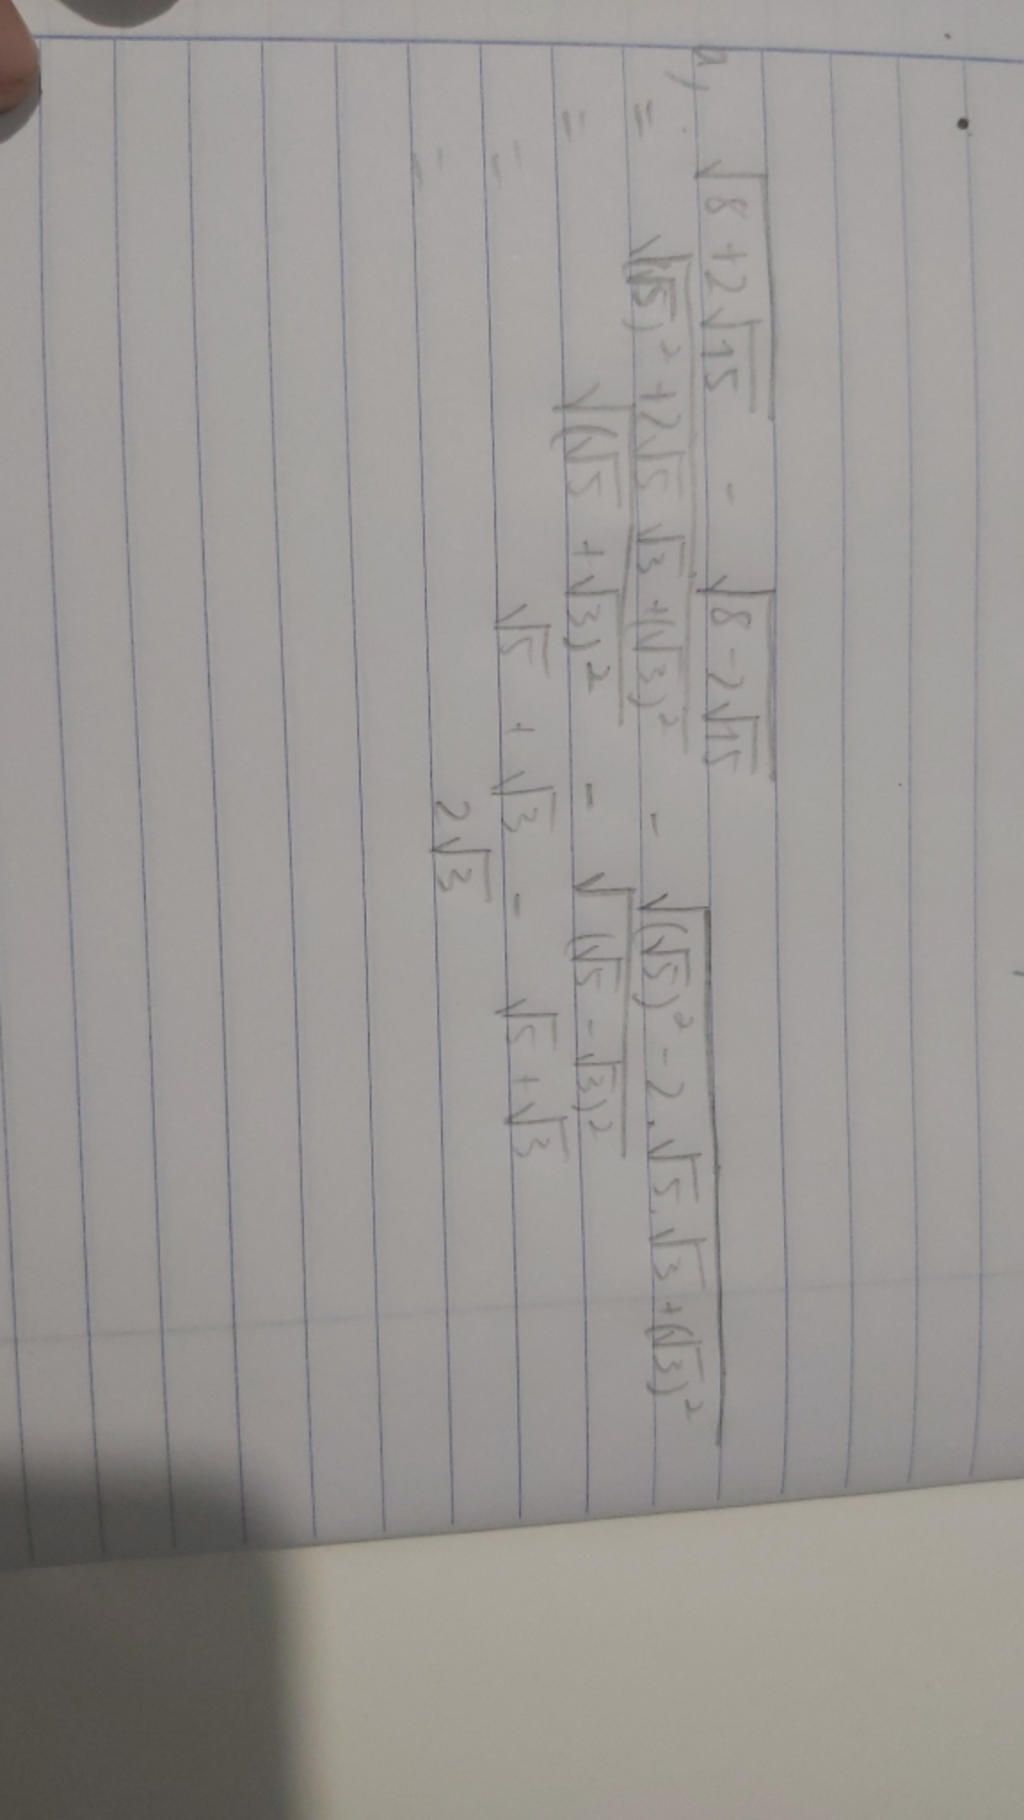 a, √(8 + 2√15) - √(8 - 2√15)
= √((√5)² + 2√5 √3 + (√3)²) - √((√5)² - 2.√5.√3 + (√3)²)
= √((√5 + √3)²) - √((√5 - √3)²)
= √5 + √3 - √5 + √3
= 2√3